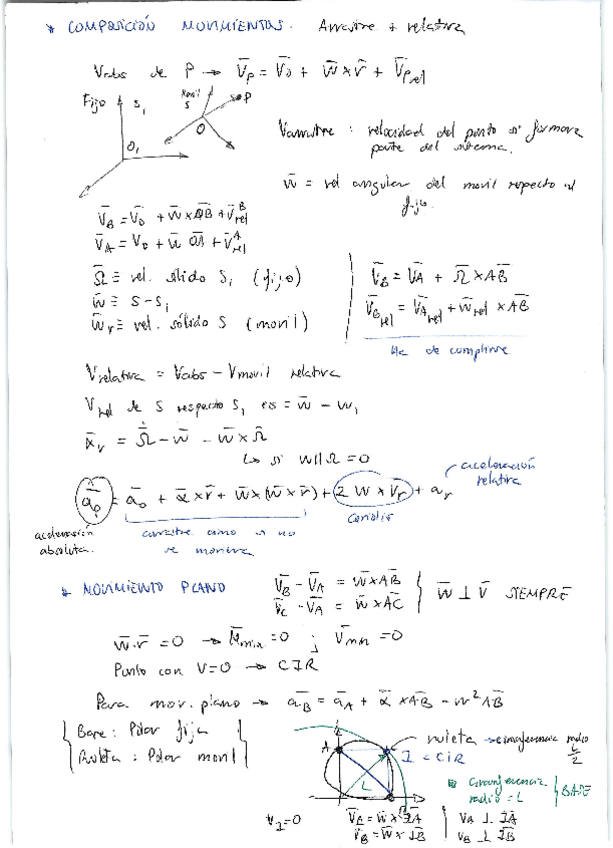 * COMPOSICIÓN MOVIMIENTOS. Arrastre + relativa
Vabs de P → V̄p = V̄o + w̄ x r̄ + V̄p rel
Fijo S₁ Movil S P
O₁ O
Varrastre : velocidad del punto si formara parte del sistema.
w̄ = vel angular del movil respecto al fijo.
V̄B = V̄o + w̄ x O̅B̅ + V̄rel B
V̄A = V̄o + w̄ O̅A̅ + V̄rel A
Ω̄ ≡ vel. sólido S₁ (fijo)
w̄ ≡ S - S₁
w̄r ≡ vel. sólido S (movil)
V̄B = V̄A + Ω̄ x A̅B̅
V̄B rel = V̄A rel + w̄rel x A̅B̅
Ha de cumplirse
Vrelativa = Vabs - Vmovil relativa
Vrel de S respecto S₁ es = w̄ - w₁
ᾱr = Ω̄̇ - w̄̇ - w̄ x Ω̄
↳ si w // Ω = 0
āp = āo + ᾱ x r̄ + w̄ x (w̄ x r̄) + 2 w x V̄r + ar
aceleración absoluta.
arrastre como si no se moviera
Coriolis
aceleración relativa
* MOVIMIENTO PLANO
V̄B - V̄A = w̄ x A̅B̅
V̄C - V̄A = w̄ x A̅C̅
w̄ ⊥ V̄ SIEMPRE
w̄ · r̄ = 0 → V̄min = 0 ; V̄min = 0
Punto con V=0 → CIR
Para mov. plano → āB = āA + ᾱ x A̅B̅ - w² A̅B̅
Base : Polar fija
Ruleta : Polar movil
A L
ruleta → circunferencia radio L/2
I = CIR
circunferencia radio = L } BASE
VI = 0
V̄A = w̄ x I̅A̅
V̄B = w̄ x I̅B̅
VA ⊥ I̅A̅
VB ⊥ I̅B̅